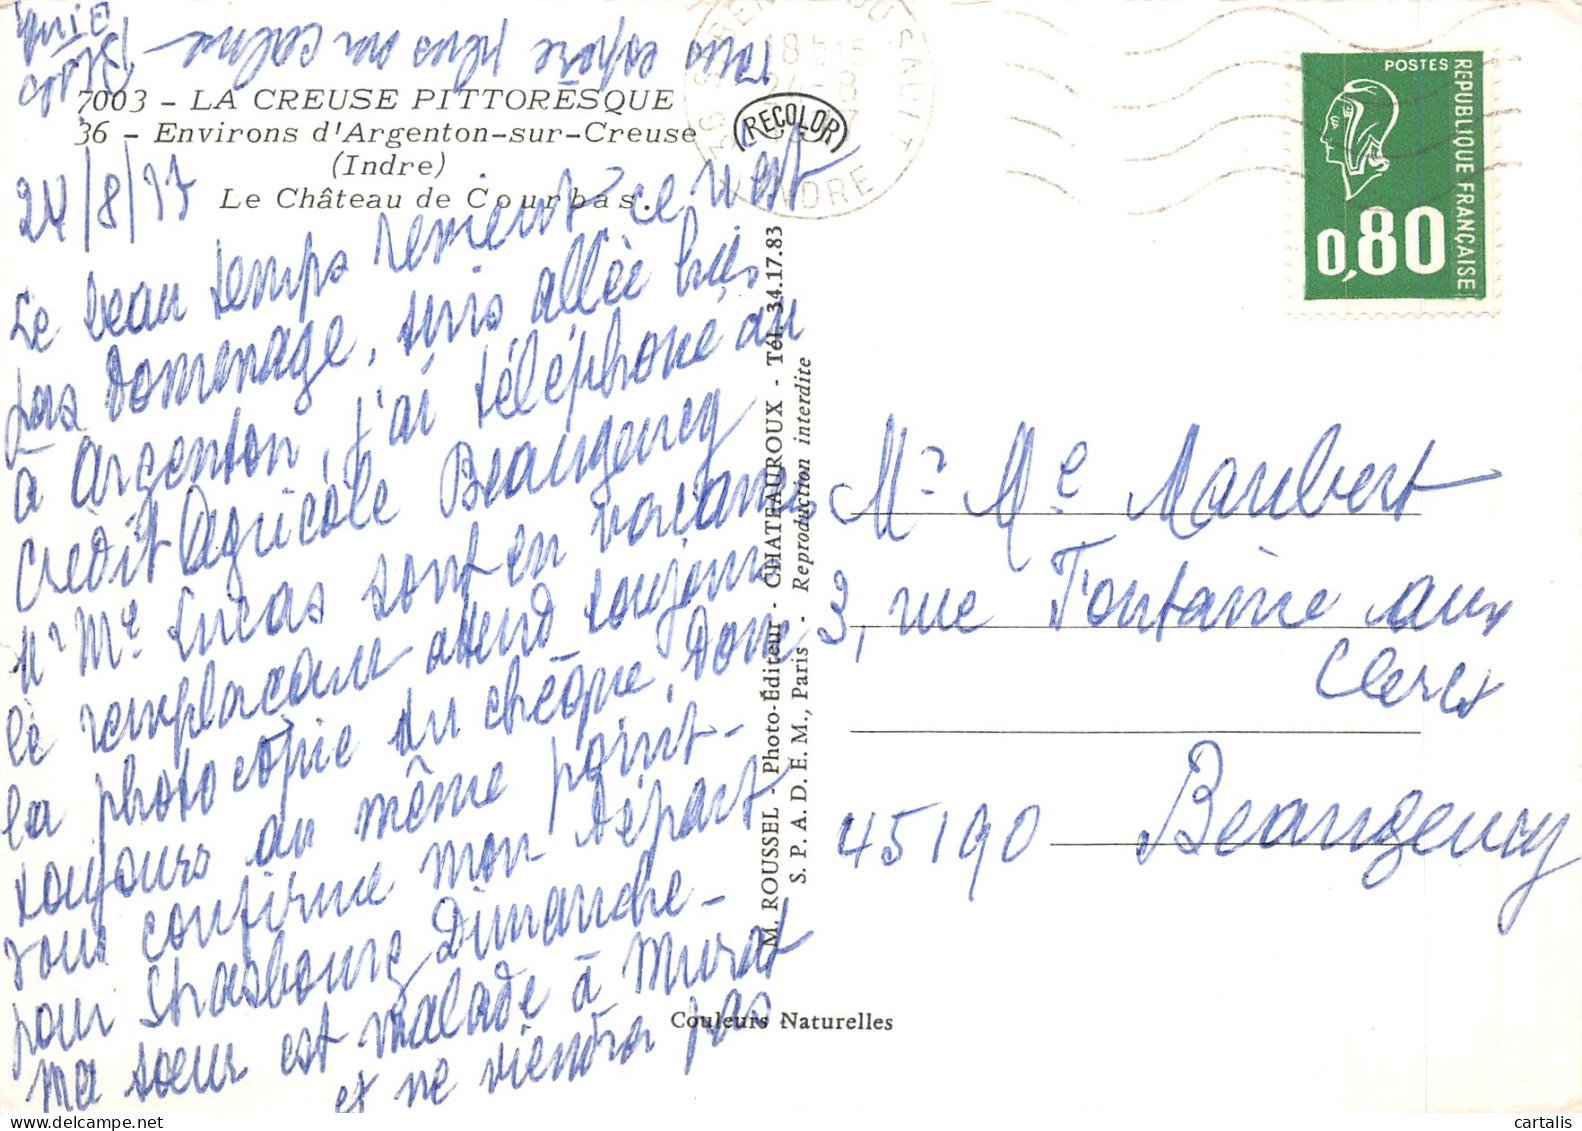 7003 - LA CREUSE PITTORESQUE
36 - Environs d'Argenton-sur-Creuse
(Indre)
Le Château de Courbas.
24/8/77
Le beau temps revient ce n'est
pas domenage, suis allée hier
à Argenton, j'ai téléphoné au
Crédit Agricole Beaugency
Mr Me Lucas sont en vacances
le remplaçant attend toujours
la photocopie du chèque, donc
toujours au même point-
vous confirme mon départ
pour Strasbourg Dimanche-
Ma soeur est malade à Murat
et ne viendra pas
vous espère plus au calme
RECOLOR
INDRE
POSTES
REPUBLIQUE FRANÇAISE
0,80
M. ROUSSEL - Photo-Éditeur - CHATEAUROUX - Tél. 34.17.83
S. P. A. D. E. M., Paris - Reproduction interdite
Mr Me Maubert
3, rue Fontaine aux
Clercs
45190 Beaugency
Couleurs Naturelles
cartalis.com